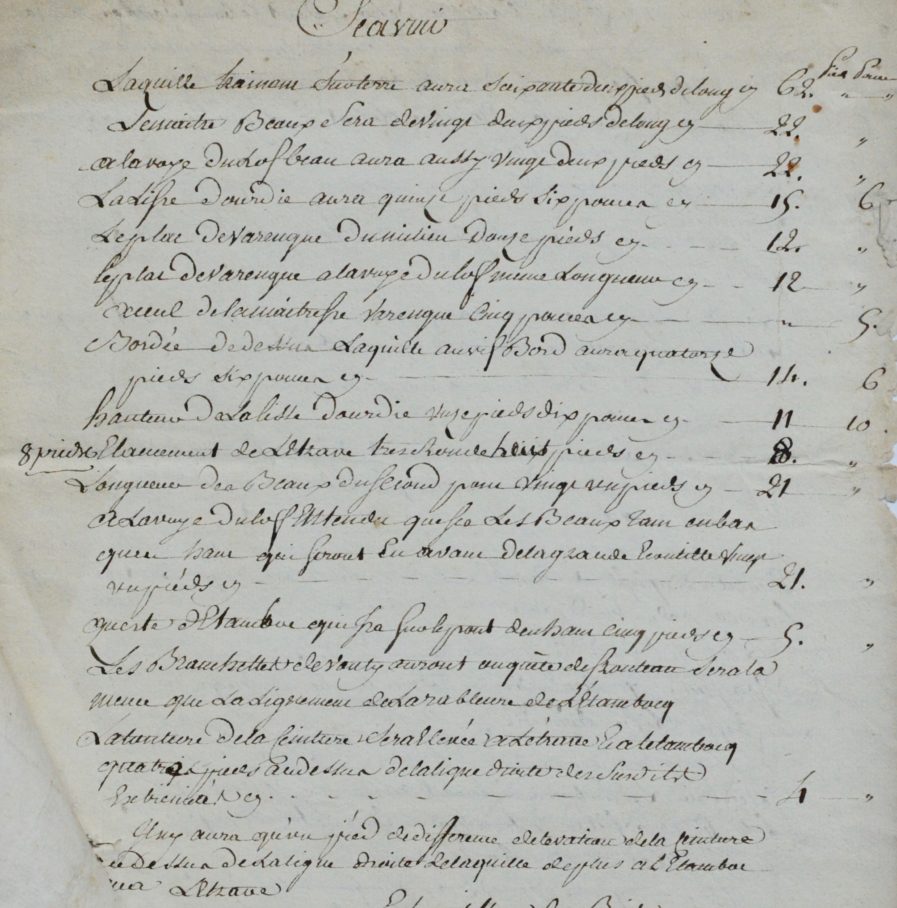 Scavoir
Pies Pouces
Laquille trainant sur terre aura soixante deux pieds de long cy 62. " "
Le maitre Beaux sera de vingt deux pieds de long cy 22. "
a la voye du Lof beau aura aussy vingt deux pieds cy 22. "
La Lisse dourdie aura quinze pieds six pouces cy 15. 6
Le plat de varengue du milieu douze pieds cy 12. "
le plat de varengue a la voye du lof meme Longueur cy 12 "
acceul de la maitresse varengue cinq pouces cy " 5.
Bordée de dessus Laquille au vif Bord aura quatorze
pieds six pouces cy 14. 6
hauteur de La lisse dourdie unze pieds dix pouces cy 11 10.
8 pieds Elancement de L'Etrave tres Ronde huit pieds cy 8. "
Longueur des Beaux du second pont vingt un pieds cy 21 "
a La voye du lof Entendu que ce Les Beaux tant en bas
qu'en haut qui seront En avant de la grande Ecoutille vingt
un pieds cy 21. "
queste d'Etambot sur le pont den haut cinq pieds cy 5. "
Les auront en quête de sera la
meme que La Lignement de La rablure de L'Etambocq
La tonture de la Ceinture sera Elevée a L'étrave Et a letambocq
quatre pieds au dessus de la ligne droite des susdites
Extremités cy 4 "
Il n'y aura qu'un pied de difference d'elevation de la Ceinture
au dessus de La ligne droite de laquille de plus a l'Etambot
L'Etrave